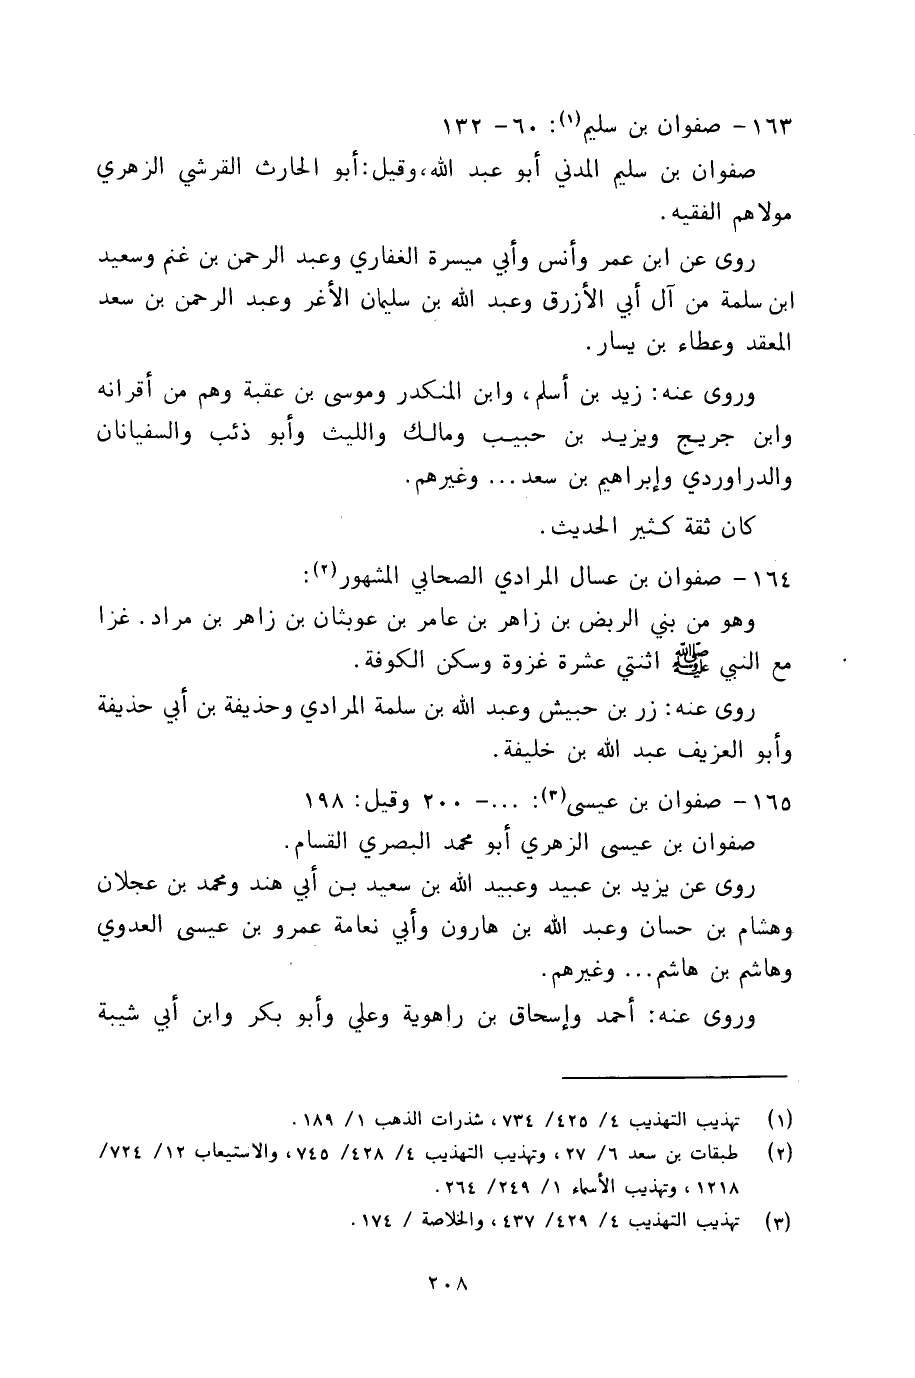 ١٦٣ - صفوان بن سليم(١): ٦٠ - ١٣٢
صفوان بن سليم المدني أبو عبد الله، وقيل: أبو الحارث القرشي الزهري
مولاهم الفقيه.
روى عن ابن عمر وأنس وأبي ميسرة الغفاري وعبد الرحمن بن غنم وسعيد
ابن سلمة من آل أبي الأزرق وعبد الله بن سليمان الأغر وعبد الرحمن بن سعد
المقعد وعطاء بن يسار.
وروى عنه: زيد بن أسلم، وابن المنكدر وموسى بن عقبة وهم من أقرانه
وابن جريج ويزيد بن حبيب ومالك والليث وأبو ذئب والسفيانان
والدراوردي وإبراهيم بن سعد... وغيرهم.
كان ثقة كثير الحديث.
١٦٤ - صفوان بن عسال المرادي الصحابي المشهور(٢):
وهو من بني الربض بن زاهر بن عامر بن عوبثان بن زاهر بن مراد. غزا
مع النبي ﷺ اثنتي عشرة غزوة وسكن الكوفة.
روى عنه: زر بن حبيش وعبد الله بن سلمة المرادي وحذيفة بن أبي حذيفة
وأبو العزيف عبد الله بن خليفة.
١٦٥ - صفوان بن عيسى(٣): ...- ٢٠٠ وقيل: ١٩٨
صفوان بن عيسى الزهري أبو محمد البصري القسام.
روى عن يزيد بن عبيد وعبيد الله بن سعيد بن أبي هند ومحمد بن عجلان
وهشام بن حسان وعبد الله بن هارون وأبي نعامة عمرو بن عيسى العدوي
وهاشم بن هاشم... وغيرهم.
وروى عنه: أحمد وإسحاق بن راهوية وعلي وأبو بكر وابن أبي شيبة
(١) تهذيب التهذيب ٤/ ٤٢٥/ ٧٣٤، شذرات الذهب ١/ ١٨٩.
(٢) طبقات بن سعد ٦/ ٢٧، وتهذيب التهذيب ٤/ ٤٢٨/ ٧٤٥، والاستيعاب ١٢/ ٧٢٤/
١٢١٨، وتهذيب الأسماء ١/ ٢٤٩/ ٢٦٤.
(٣) تهذيب التهذيب ٤/ ٤٢٩/ ٤٣٧، والخلاصة / ١٧٤.
٢٠٨